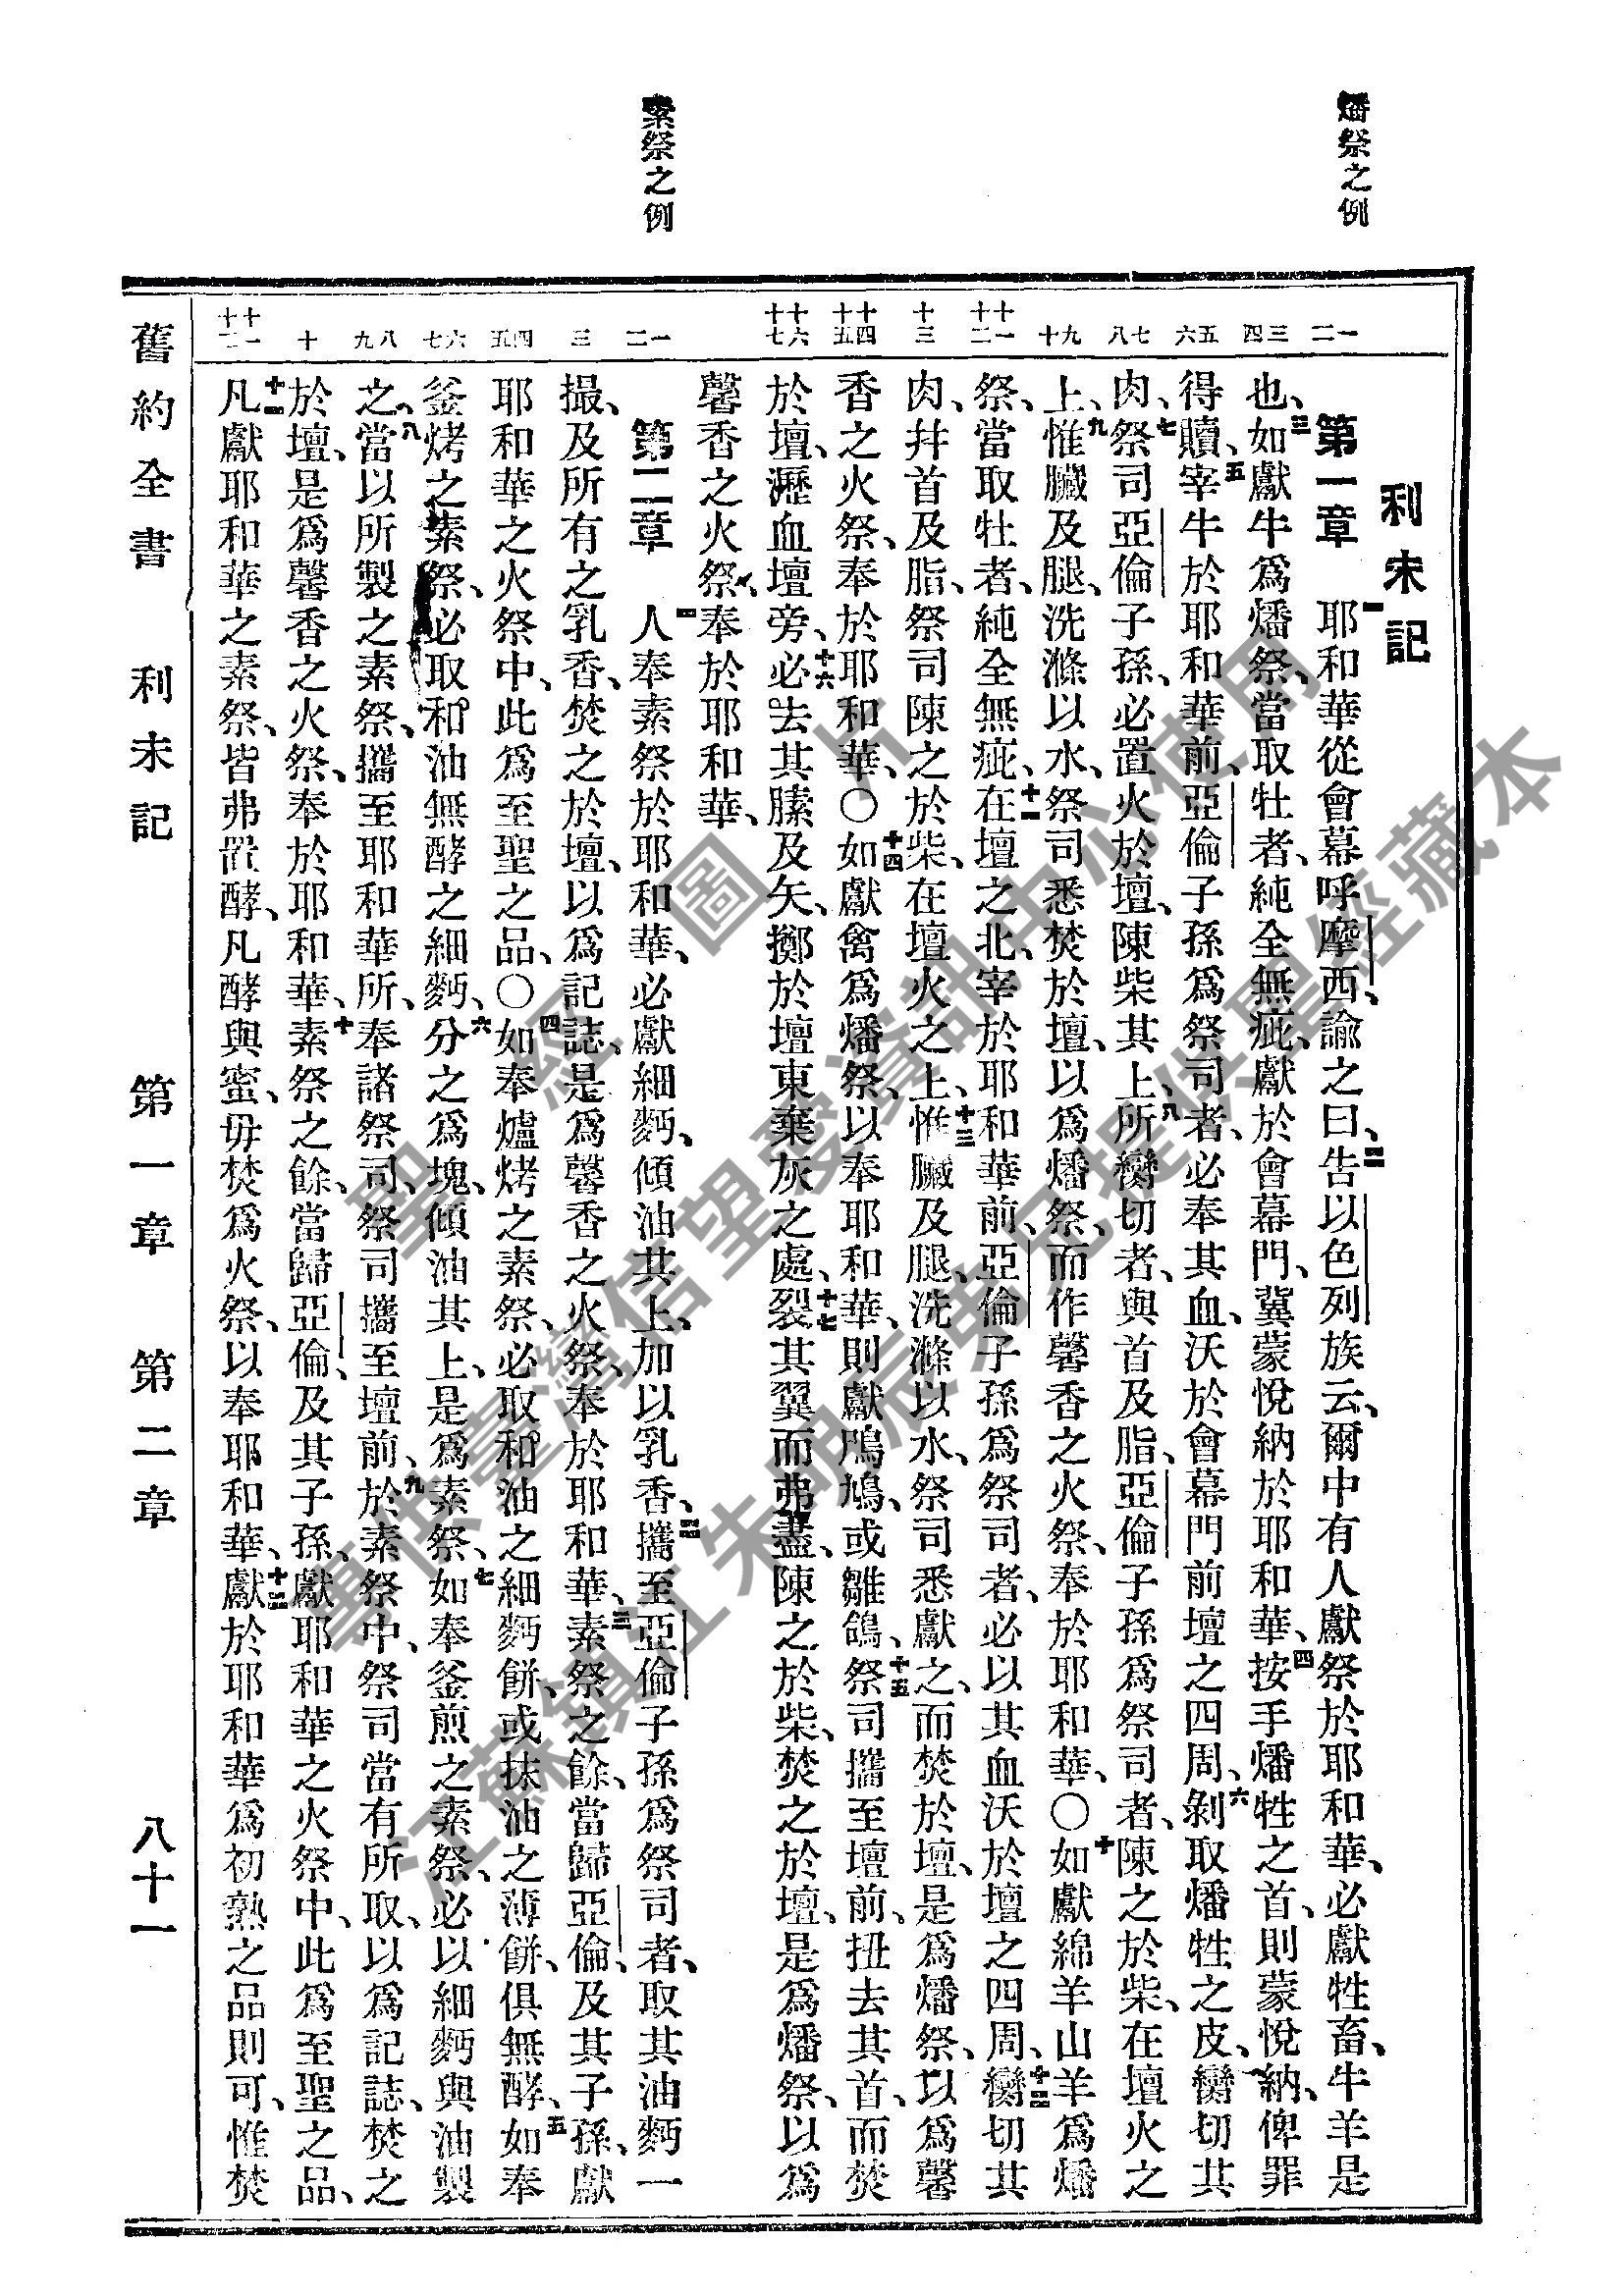 燔祭之例
素祭之例
利未記
一 二 三 四 五 六 七 八 九 十 十一 十二 十三 十四 十五 十六 十七 一 二 三 四 五 六 七 八 九 十 十一 十二
第一章 一耶和華從會幕呼摩西、諭之曰、二告以色列族云、爾中有人獻祭於耶和華、必獻牲畜、牛羊是
也、三如獻牛爲燔祭、當取牡者、純全無疵、獻於會幕門、冀蒙悅納於耶和華、四按手燔牲之首、則蒙悅納、俾罪
得贖、五宰牛於耶和華前、亞倫子孫爲祭司者、必奉其血、沃於會幕門前壇之四周、六剝取燔牲之皮、臠切其
肉、七祭司亞倫子孫、必置火於壇、陳柴其上、八所臠切者、與首及脂、亞倫子孫爲祭司者、陳之於柴、在壇火之
上、九惟臟及腿、洗滌以水、祭司悉焚於壇、以爲燔祭、而作馨香之火祭、奉於耶和華、〇十如獻綿羊山羊爲燔
祭、當取牡者、純全無疵、十一在壇之北、宰於耶和華前、亞倫子孫爲祭司者、必以其血沃於壇之四周、十二臠切其
肉、幷首及脂、祭司陳之於柴、在壇火之上、十三惟臟及腿、洗滌以水、祭司悉獻之、而焚於壇、是爲燔祭、以爲馨
香之火祭、奉於耶和華、〇十四如獻禽爲燔祭、以奉耶和華、則獻鳲鳩、或雛鴿、十五祭司攜至壇前、扭去其首、而焚
於壇、瀝血壇旁、十六必去其膆及矢、擲於壇東棄灰之處、十七裂其翼而弗盡、陳之於柴、焚之於壇、是爲燔祭、以爲
馨香之火祭、奉於耶和華、
第二章 一人奉素祭於耶和華、必獻細麪、傾油其上、加以乳香、二攜至亞倫子孫爲祭司者、取其油麪一
撮、及所有之乳香、焚之於壇、以爲記誌、是爲馨香之火祭、奉於耶和華、三素祭之餘、當歸亞倫、及其子孫、獻
耶和華之火祭中、此爲至聖之品、〇四如奉爐烤之素祭、必取和油之細麪餅、或抹油之薄餅、俱無酵、五如奉
釜烤之素祭、必取和油無酵之細麪、六分之爲塊、傾油其上、是爲素祭、七如奉釜煎之素祭、必以細麪與油製
之、八當以所製之素祭、攜至耶和華所、奉諸祭司、祭司攜至壇前、九於素祭中、祭司當有所取、以爲記誌、焚之
於壇、是爲馨香之火祭、奉於耶和華、十素祭之餘、當歸亞倫、及其子孫、獻耶和華之火祭中、此爲至聖之品、
十一凡獻耶和華之素祭、皆弗置酵、凡酵與蜜、毋焚爲火祭、以奉耶和華、十二獻於耶和華爲初熟之品則可、惟焚
舊約全書 利未記 第一章 第二章 八十一
聖經圖片
專供臺灣信望愛資訊中心使用
江蘇鎮江朱明辰弟兄提供聖經藏本